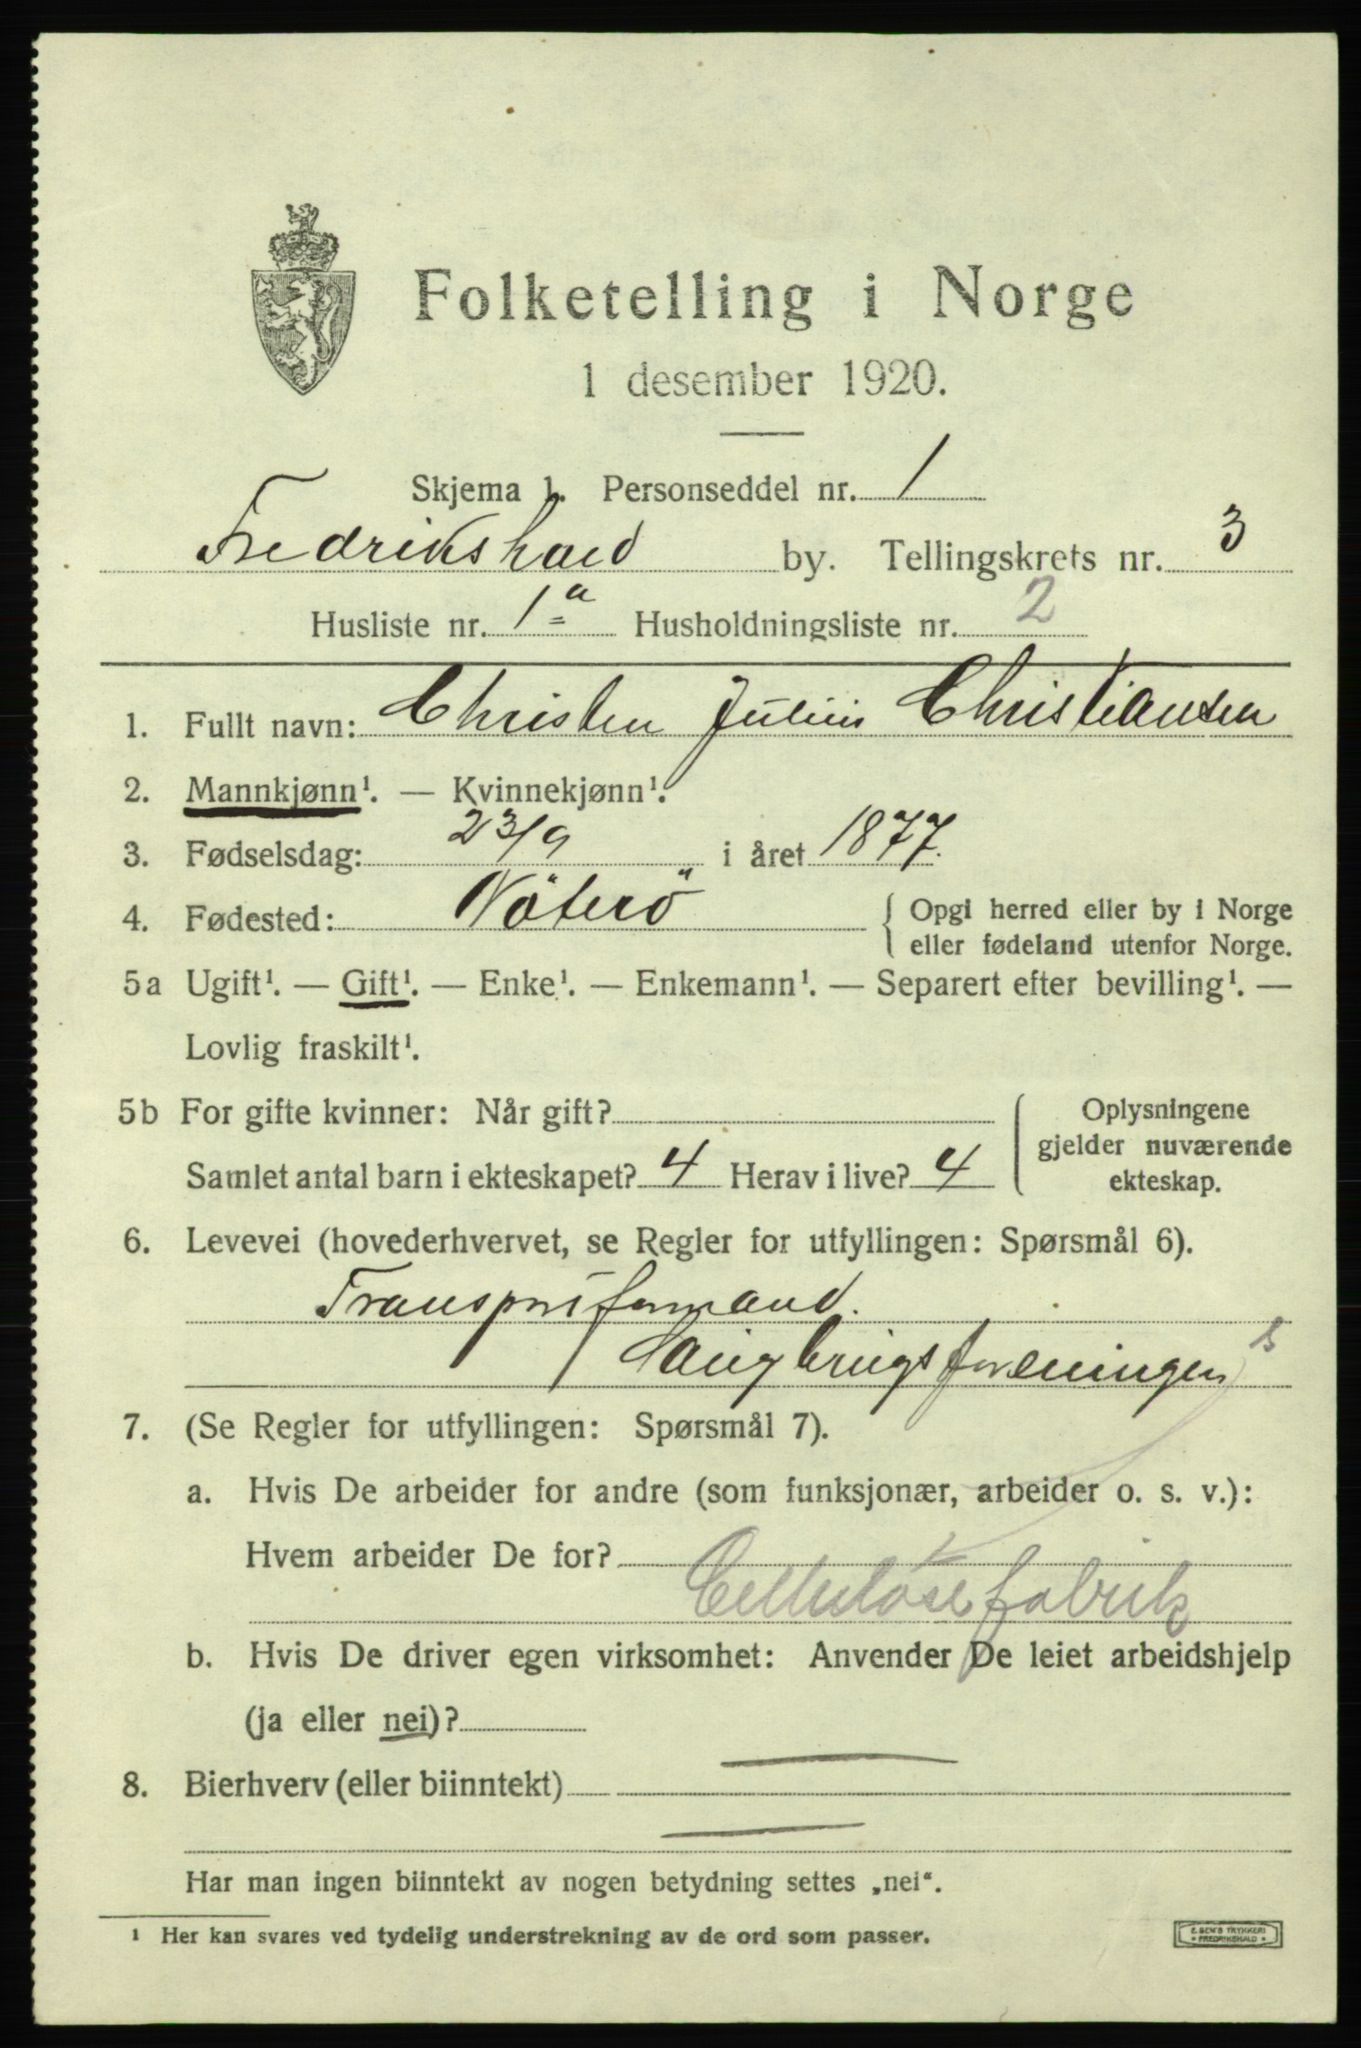 Folketelling i Norge
1 desember 1920.
Skjema 1. Personseddel nr. 1
Fredrikshald by. Tellingskrets nr. 3
Husliste nr. 1a Husholdningsliste nr. 2
1. Fullt navn: Christen Julius Christiansen
2. Mannkjønn¹. — Kvinnekjønn¹.
3. Fødselsdag: 23/9 i året 1877.
4. Fødested: Nöterö { Opgi herred eller by i Norge
eller fødeland utenfor Norge.
5a Ugift¹. — Gift¹. — Enke¹. — Enkemann¹. — Separert efter bevilling¹. —
Lovlig fraskilt¹.
5b For gifte kvinner: Når gift?
Samlet antal barn i ekteskapet? 4 Herav i live? 4
{ Oplysningene
gjelder nuværende
ekteskap.
6. Levevei (hovederhvervet, se Regler for utfyllingen: Spørsmål 6).
Transportformand.
Saugbrugsforeningen s
7. (Se Regler for utfyllingen: Spørsmål 7).
a. Hvis De arbeider for andre (som funksjonær, arbeider o. s. v.):
Hvem arbeider De for?
Cellulosefabrik
b. Hvis De driver egen virksomhet: Anvender De leiet arbeidshjelp
(ja eller nei)?
8. Bierhverv (eller biinntekt)
Har man ingen biinntekt av nogen betydning settes „nei“.
¹ Her kan svares ved tydelig understrekning av de ord som passer.
E. SEM'S TRYKKERI
FREDRIKSHALD